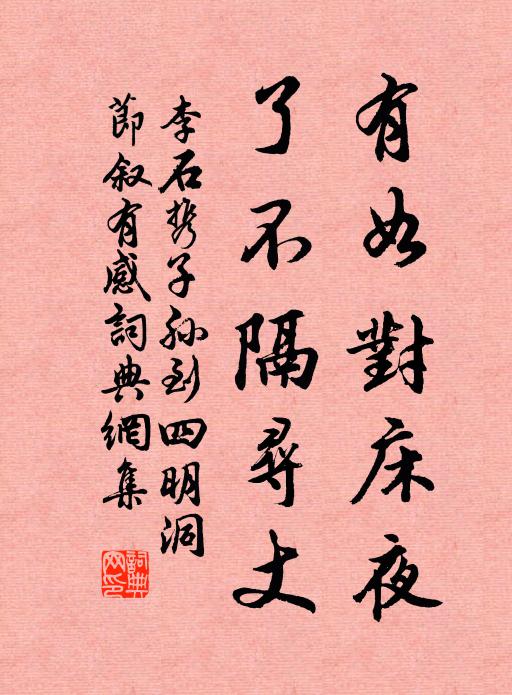 有如對床夜
了不隔尋丈
李石携子孫到四明洞
節叙有感詞典網集
詞典網印